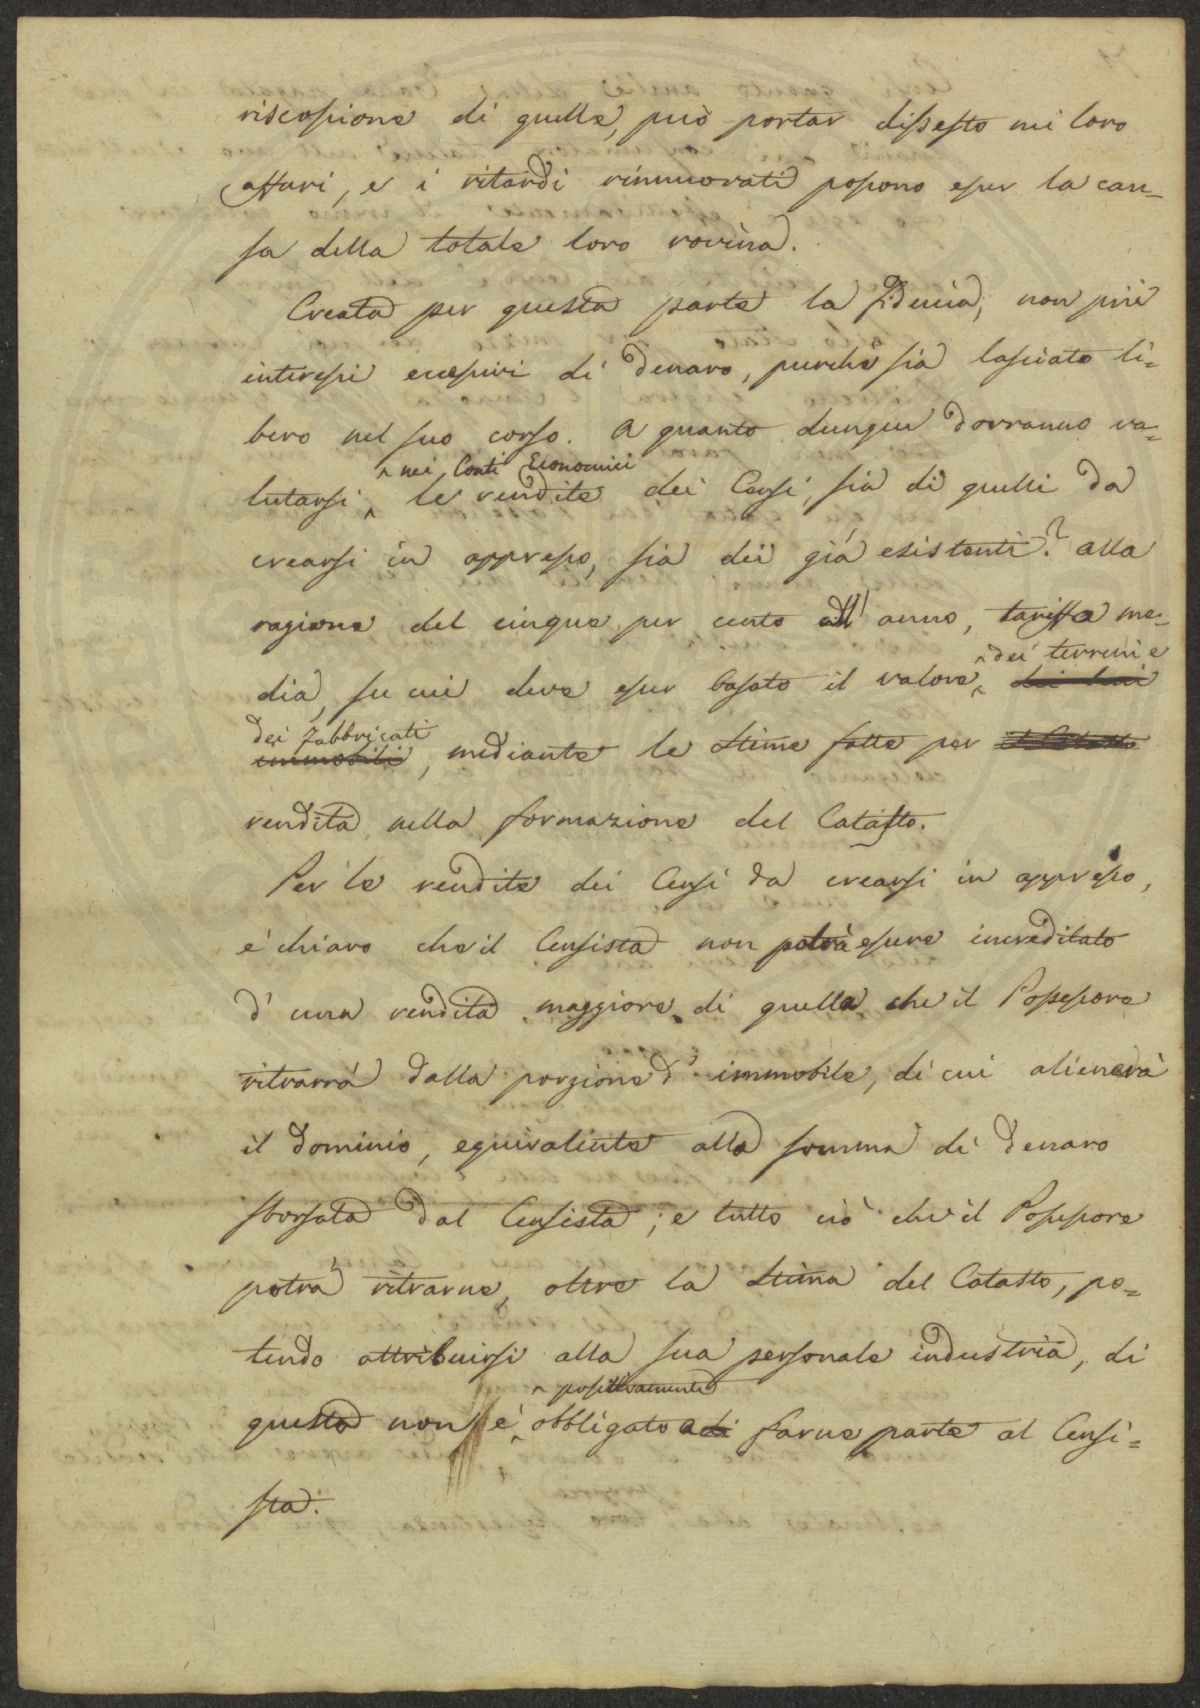 riscossione di quelle, può portar dissesto nei loro
affari, e i ritardi rinnuovati possono esser la cau=
sa della totale loro rovina.
Creata per questa parte la fiducia, non più
interessi eccessivi di denaro, purchè sia lasciato li=
bero nel suo corso. A quanto dunque dovranno va=
nei Conti Economici
lutarsi le rendite dei Censi, sia di quelli da
crearsi in appresso, sia dei già esistenti? alla
ragione del cinque per cento all'anno, tariffa me=
dei terreni e
dia, su cui deve esser basato il valore dei beni
dei fabbricati
immobili, mediante le stime fatte per il Catasto
rendita nella formazione del Catasto.
Per le rendite dei Censi da crearsi in appresso,
è chiaro che il Censista non potrà essere increditato
d'una rendita maggiore di quella che il Possessore
ritrarrà dalla porzione d'immobile, di cui alienerà
il dominio, equivalente alla somma di denaro
sborsata dal Censista; e tutto ciò che il Possessore
potrà ritrarne, oltre la stima del Catasto, po=
tendo attribuirsi alla sua personale industria, di
positivamente
questa non è obbligato a di farne parte al Censi=
sta.